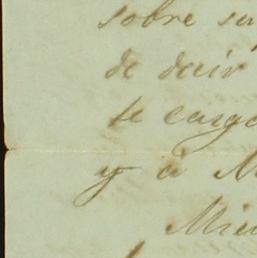 sobre su
de decir
te carg
y á M
Mi